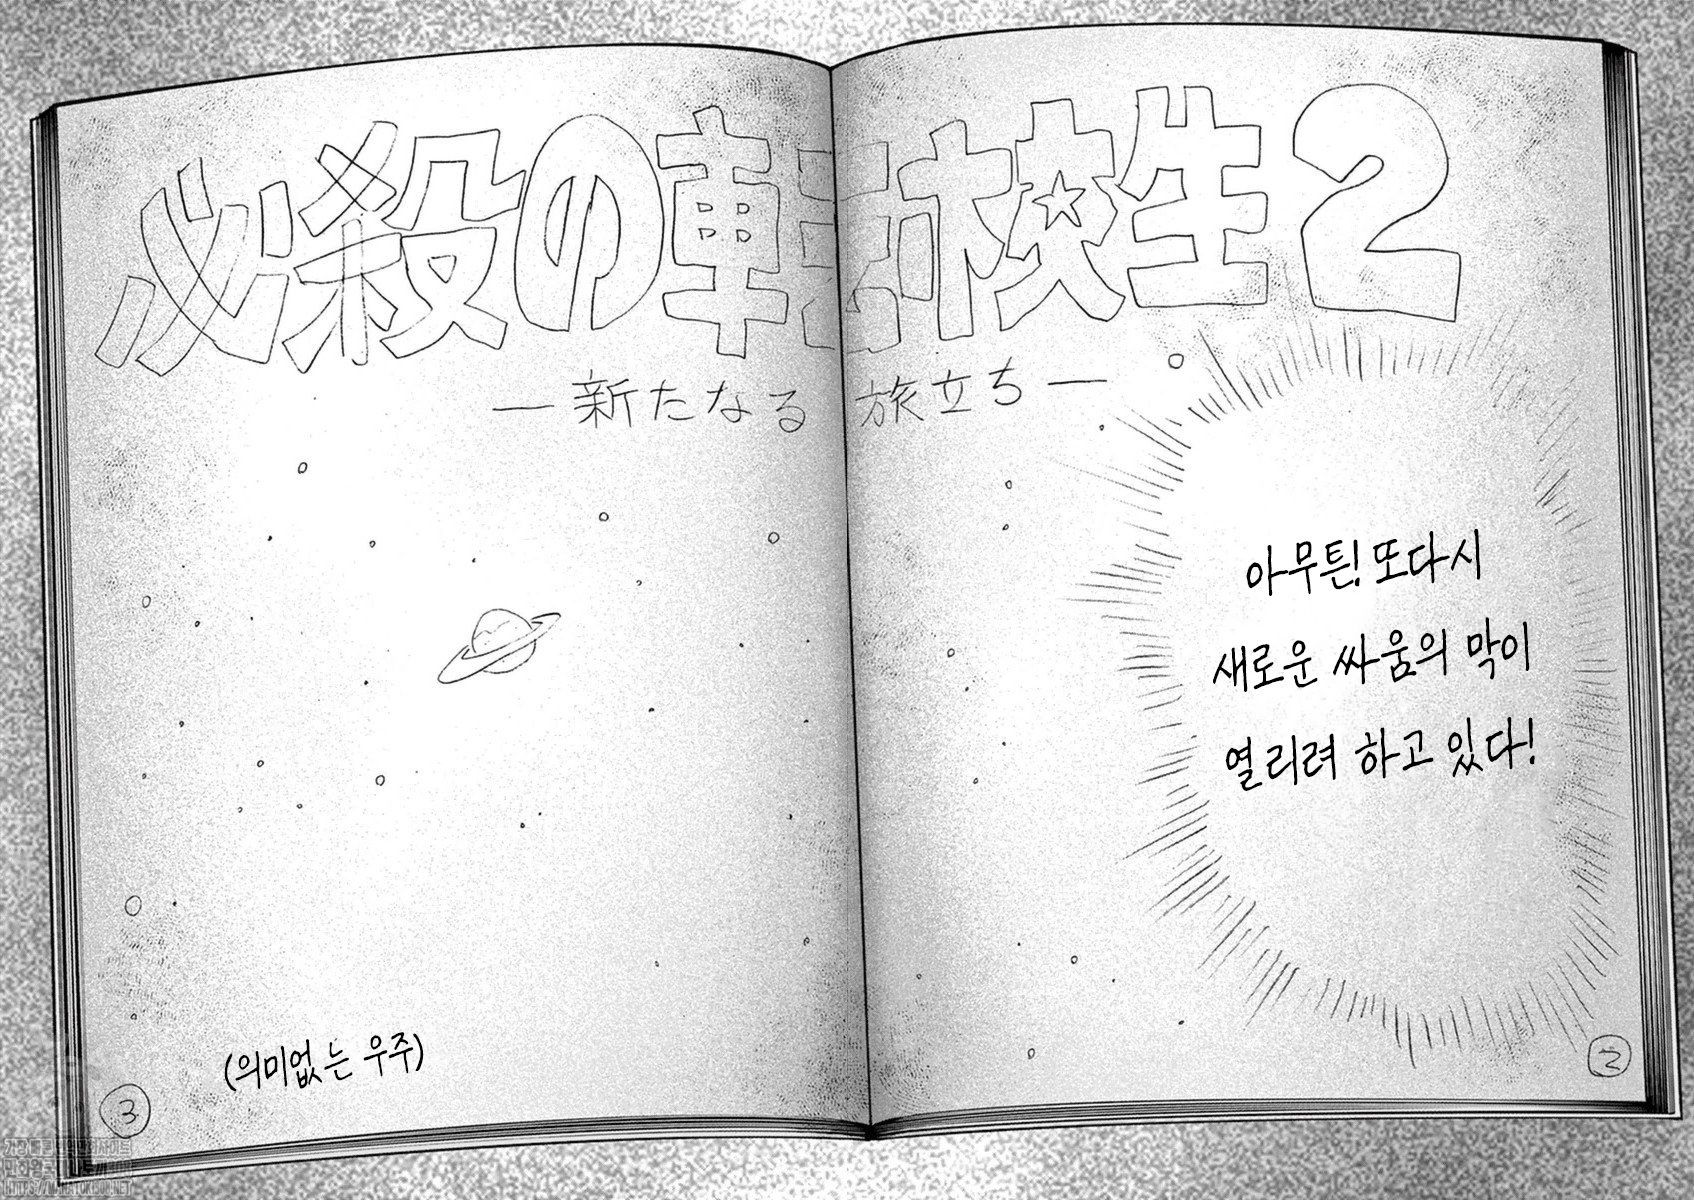 必殺の転校生2
—新たなる旅立ち—
아무튼! 또다시
새로운 싸움의 막이
열리려 하고 있다!
2
(의미없는 우주)
3